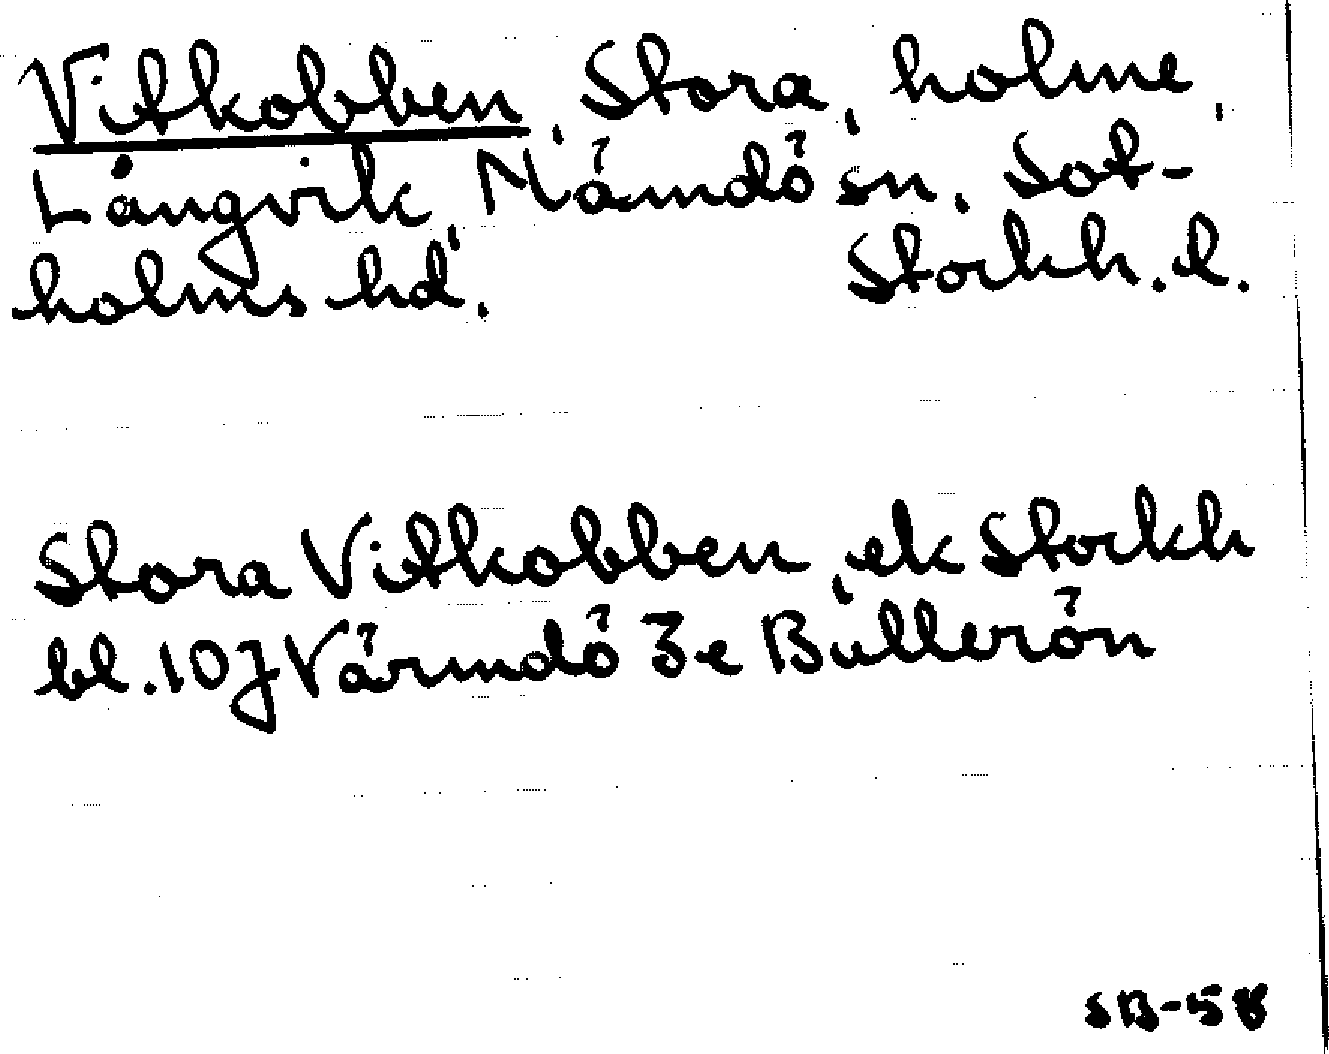 Vitkobben, Stora, holme,
Långvik, Nämdö sn, Sot-
holms hd. Stockh. l.
Stora Vitkobben, ek Stockh
bl. 107 Värmdö 3e Bullerön
SB-58